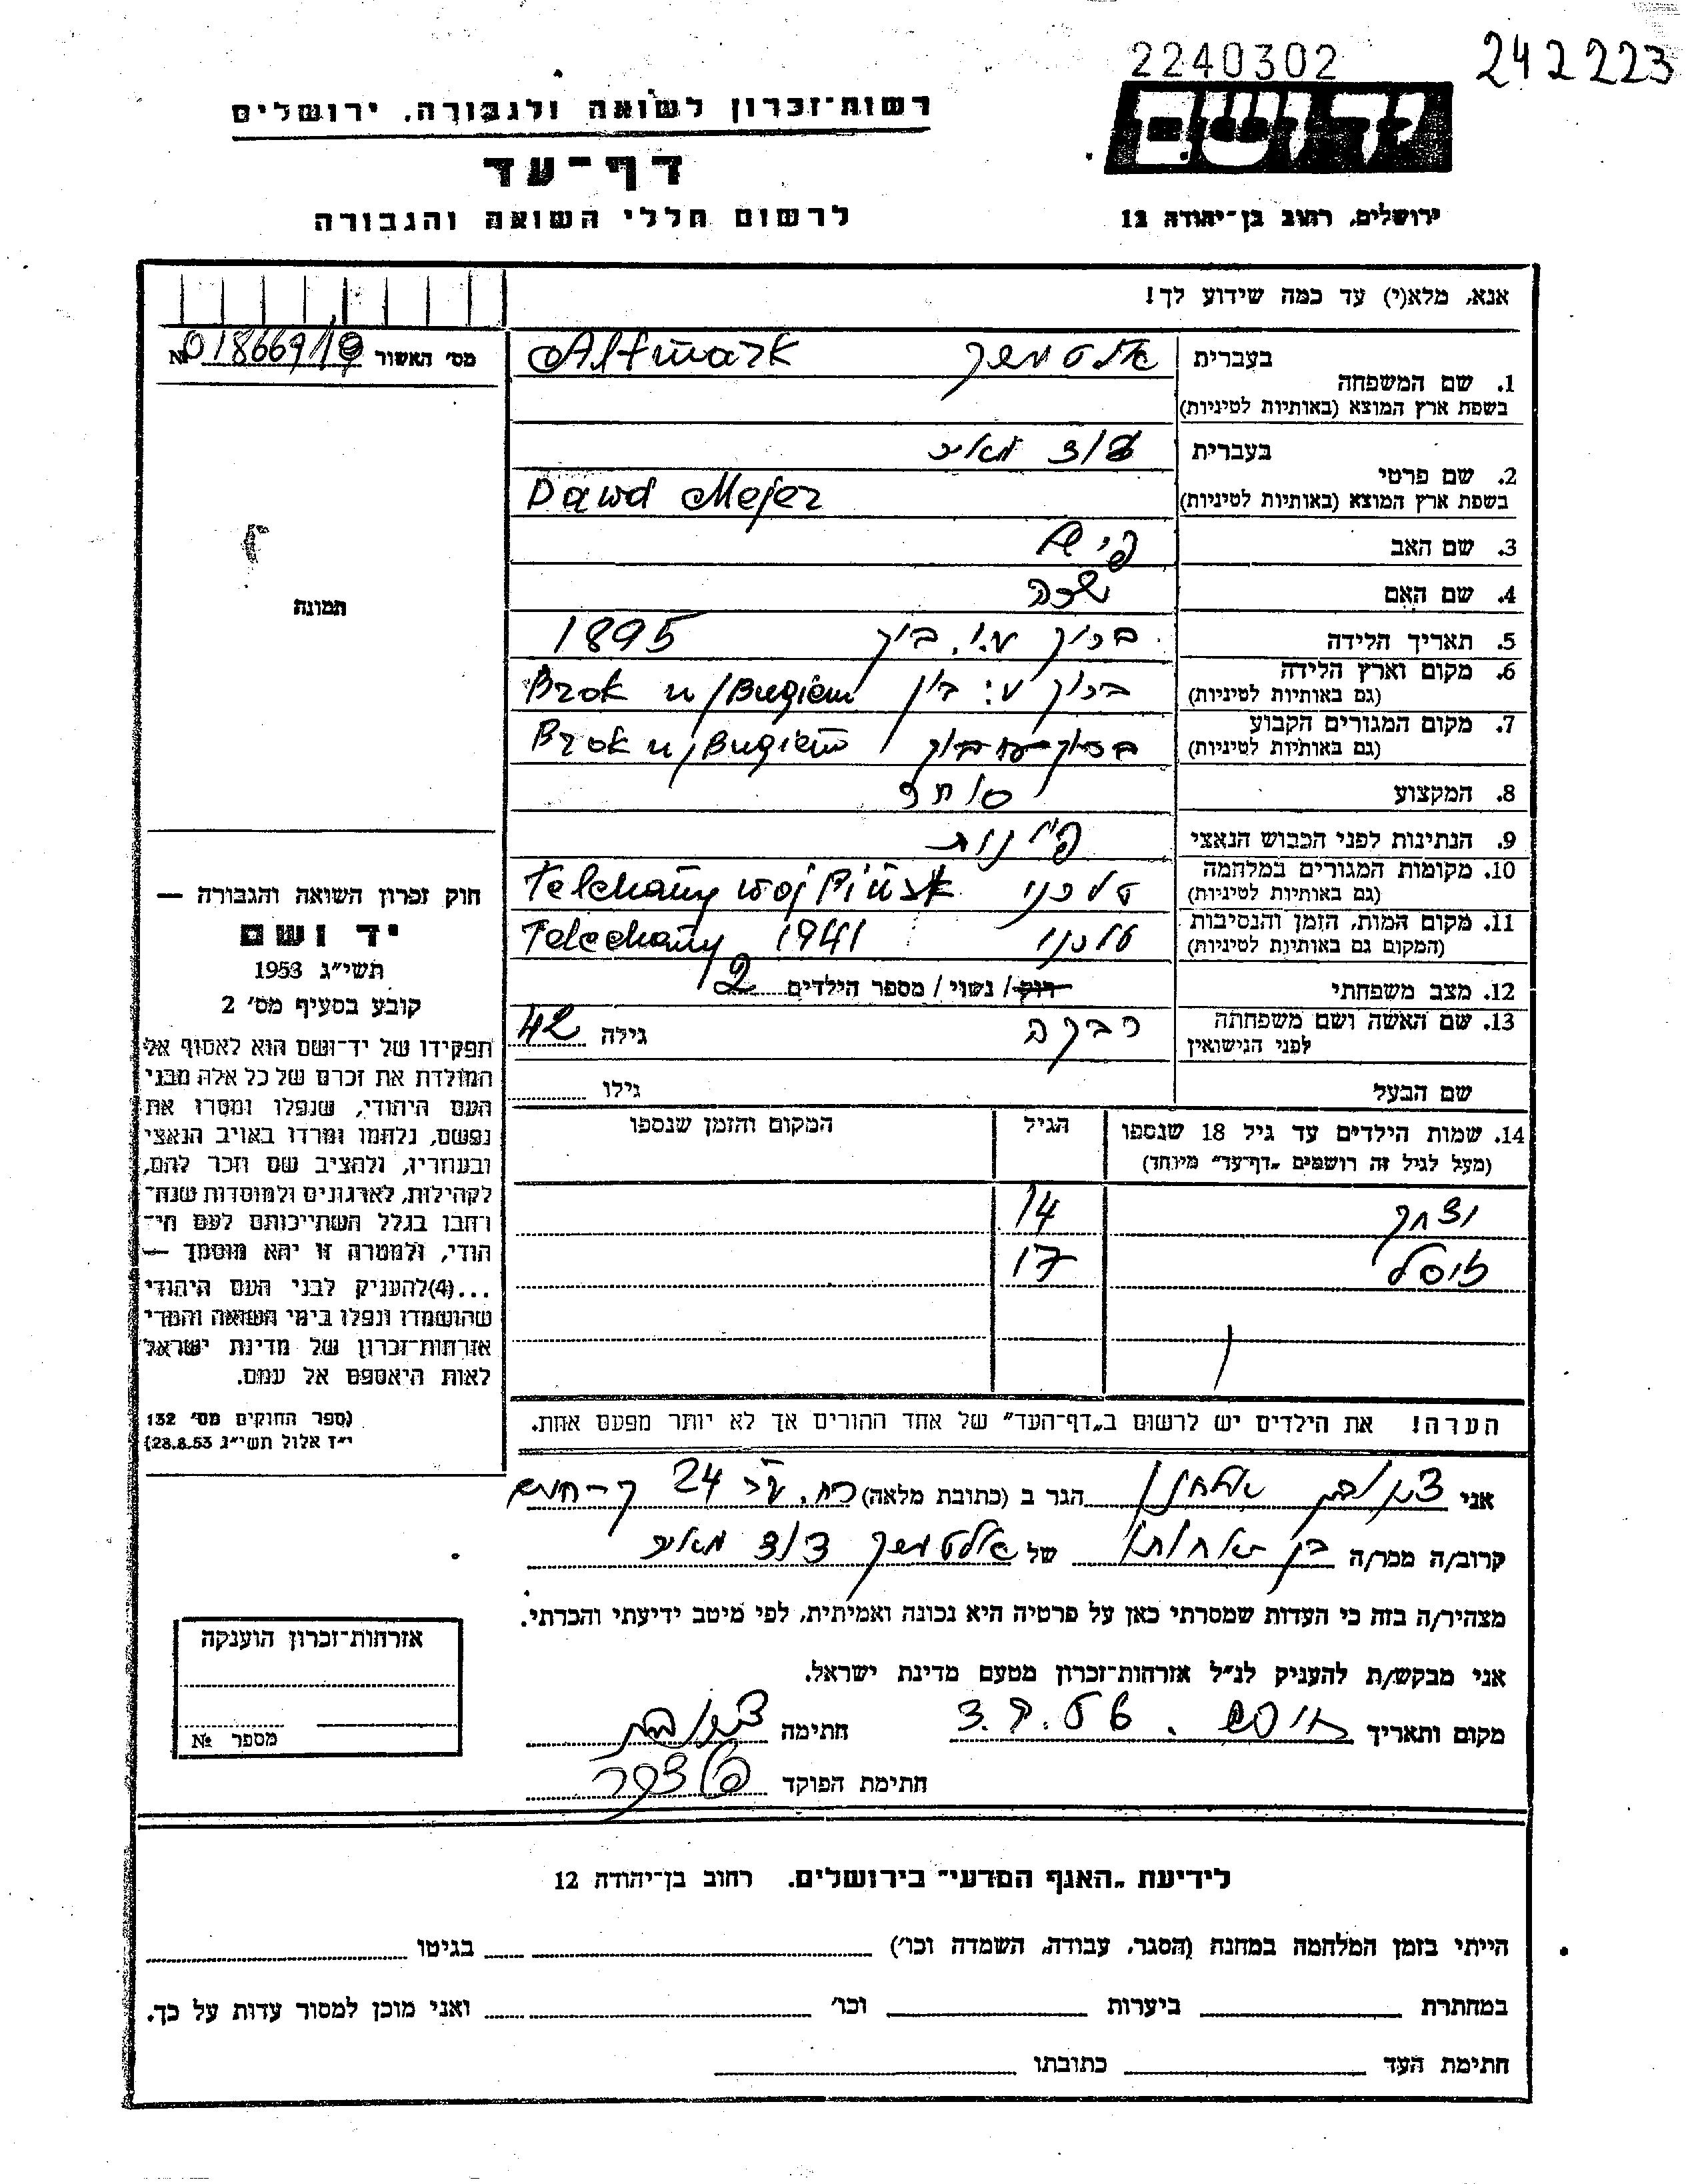 2240302
242223
רשות־זכרון לשואה ולגבורה, ירושלים
יד ושם
דף־עד
לרשום חללי השואה והגבורה
ירושלים, רחוב בן־יהודה 12
אנא, מלא(י) עד כמה שידוע לך!
מס׳ האשור № 01866919
1. שם המשפחה
בעברית
אלטמרק Altmark
בשפת ארץ המוצא (באותיות לטיניות)
2. שם פרטי
בעברית
דוד מאיר
בשפת ארץ המוצא (באותיות לטיניות) Dawd Mejer
3. שם האב
4. שם האם
5. תאריך הלידה 1895
6. מקום וארץ הלידה
(גם באותיות לטיניות) Brok n/Bugiem
7. מקום המגורים הקבוע
(גם באותיות לטיניות) Brok n/Bugiem
8. המקצוע סוחר
9. הנתינות לפני הכבוש הנאצי
10. מקומות המגורים במלחמה
(גם באותיות לטיניות) טלכני Telehany woj Pińsk
11. מקום המות, הזמן והנסיבות
(המקום גם באותיות לטיניות) טלכני 1941 Telechany
12. מצב משפחתי רווק / נשוי / מספר הילדים 2
13. שם האשה ושם משפחתה
לפני הנישואין
רבקה גילה 42
שם הבעל גילו
14. שמות הילדים עד גיל 18 שנספו
(מעל לגיל זה רושמים „דף־עד״ מיוחד)
הגיל
המקום והזמן שנספו
יצחק 14
יוסל 17
הערה! את הילדים יש לרשום ב„דף־העד״ של אחד ההורים אך לא יותר מפעם אחת.
תמונה
חוק זכרון השואה והגבורה —
יד ושם
תשי״ג 1953
קובע בסעיף מס׳ 2
תפקידו של יד־ושם הוא לאסוף אל
המולדת את זכרם של כל אלה מבני
העם היהודי, שנפלו ומסרו את
נפשם, נלחמו ומרדו באויב הנאצי
ובעוזריו, ולהציב שם וזכר להם,
לקהילות, לארגונים ולמוסדות שנח־
רבו בגלל השתייכותם לעם הי־
הודי, ולמטרה זו יהא מוסמך —
...(4)להעניק לבני העם היהודי
שהושמדו ונפלו בימי השואה והמרי
אזרחות־זכרון של מדינת ישראל
לאות היאספם אל עמם.
(ספר החוקים מס׳ 132
י״ז אלול תשי״ג 28.8.53)
אני אלחנן הגר ב (כתובת מלאה) 24
קרוב/ה מכר/ה בן אחותו של אלטמרק דוד מאיר
מצהיר/ה בזה כי העדות שמסרתי כאן על פרטיה היא נכונה ואמיתית, לפי מיטב ידיעתי והכרתי.
אני מבקש/ת להעניק לנ״ל אזרחות־זכרון מטעם מדינת ישראל.
מקום ותאריך חתימה
חתימת הפוקד
אזרחות־זכרון הוענקה
מספר №
לידיעת „האגף המדעי״ בירושלים. רחוב בן־יהודה 12
הייתי בזמן המלחמה במחנה (הסגר, עבודה, השמדה וכו׳) בגיטו
במחתרת ביערות וכו׳ ואני מוכן למסור עדות על כך.
חתימת העד כתובתו